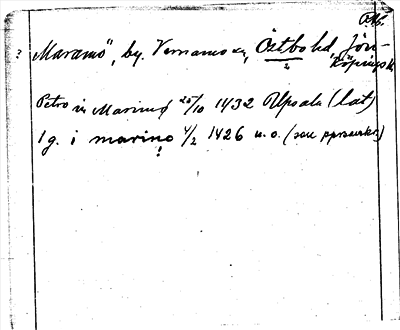 ? "Maramö", by. Värnamo sn, Östbo hd, Jön-
köpings l.
Petro in Marinus 25/10 1432 Upsala (lat)
1 g. i marino 4/2 1426 u.o. (sen